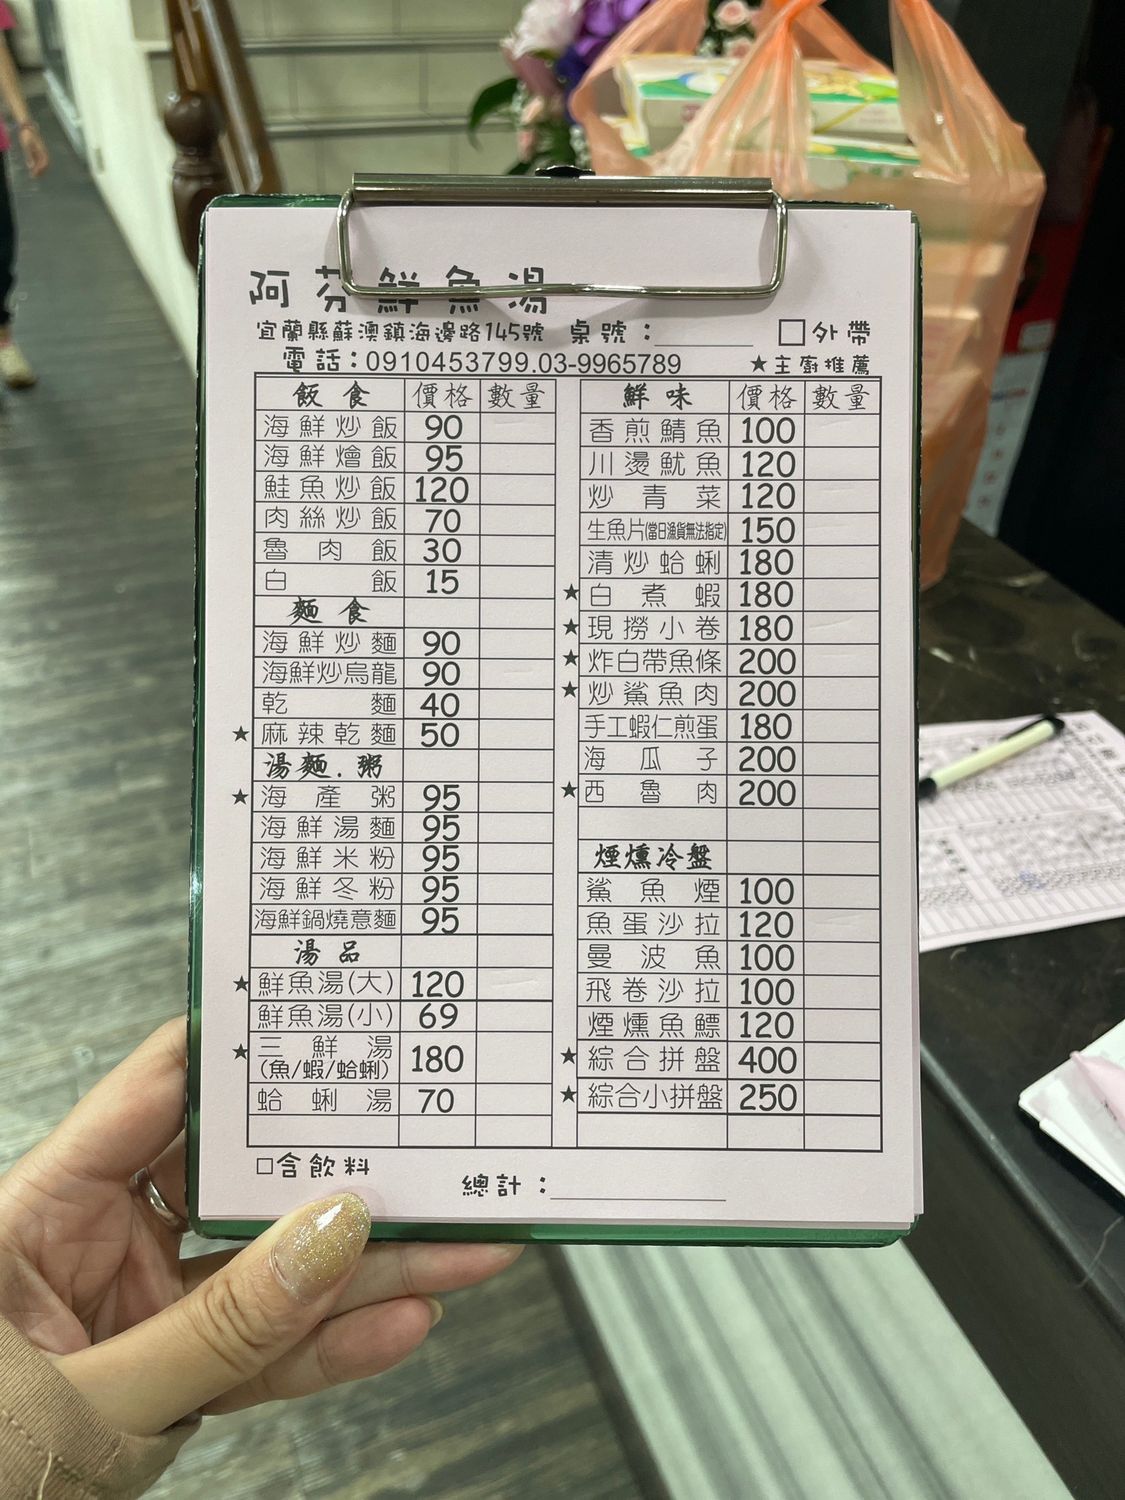 阿芬鮮魚湯
宜蘭縣蘇澳鎮海邊路145號 桌號：
□外帶
電話：0910453799.03-9965789
★主廚推薦
飯食 價格 數量
海鮮炒飯 90
海鮮燴飯 95
鮭魚炒飯 120
肉絲炒飯 70
魯肉飯 30
白飯 15
麵食
海鮮炒麵 90
海鮮炒烏龍 90
乾麵 40
★麻辣乾麵 50
湯麵.粥
★海產粥 95
海鮮湯麵 95
海鮮米粉 95
海鮮冬粉 95
海鮮鍋燒意麵 95
湯品
★鮮魚湯(大) 120
鮮魚湯(小) 69
★三鮮湯 180
(魚/蝦/蛤蜊)
蛤蜊湯 70
鮮味 價格 數量
香煎鯖魚 100
川燙魷魚 120
炒青菜 120
生魚片(當日漁貨無法指定) 150
清炒蛤蜊 180
★白煮蝦 180
★現撈小卷 180
★炸白帶魚條 200
★炒鯊魚肉 200
手工蝦仁煎蛋 180
海瓜子 200
★西魯肉 200
煙燻冷盤
鯊魚煙 100
魚蛋沙拉 120
曼波魚 100
飛卷沙拉 100
煙燻魚鰾 120
★綜合拼盤 400
★綜合小拼盤 250
□含飲料
總計：